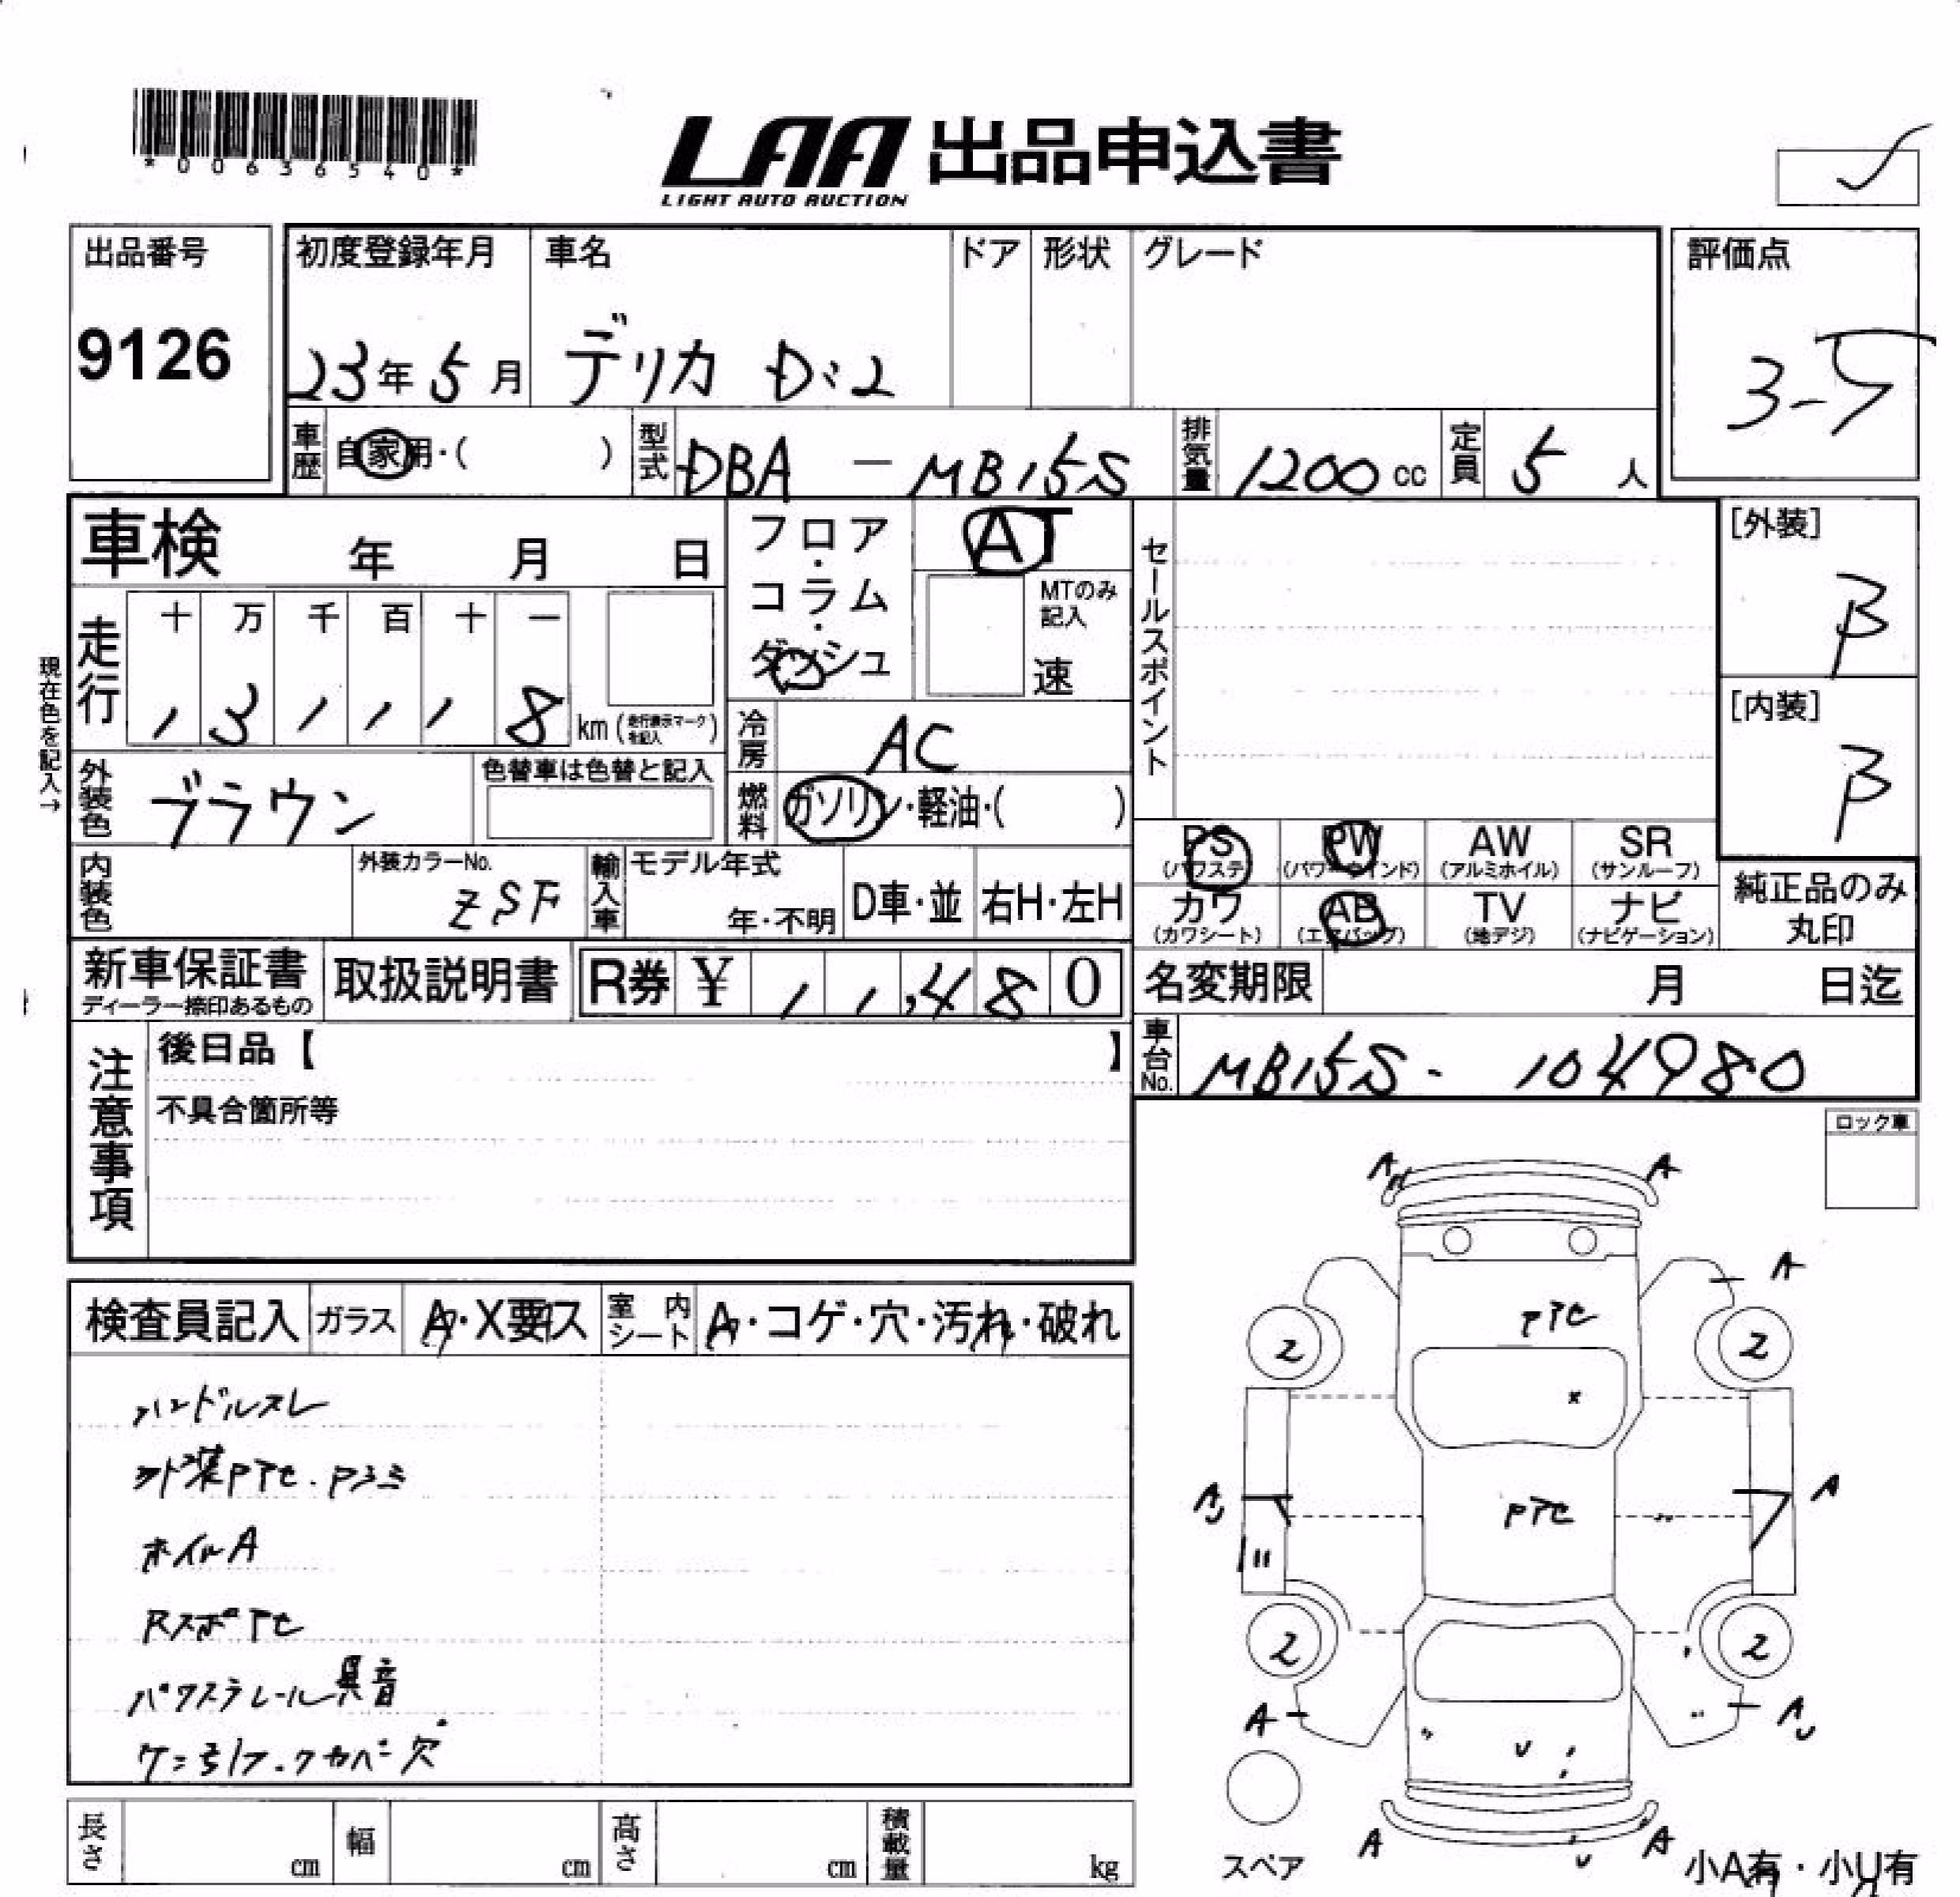 *00636540*
LAA 出品申込書
LIGHT AUTO AUCTION
出品番号
9126
初度登録年月
23年5月
車名
デリカ D:2
ドア
形状
グレード
評価点
3-5
車歴
自家用・( )
型式
DBA - MB15S
排気量
1200 cc
定員
5 人
車検 年 月 日
フロア・コラム・ダッシュ
AT
MTのみ記入
速
セールスポイント
[外装]
B
[内装]
B
現在色を記入→
走行
十 万 千 百 十 一
1 3 1 1 1 8 km (走行表示マークを記入)
冷房
AC
外装色
ブラウン
色替車は色替と記入
燃料
ガソリン・軽油・( )
PS
(パワステ)
PW
(パワーウインド)
AW
(アルミホイル)
SR
(サンルーフ)
カワ
(カワシート)
AB
(エアバッグ)
TV
(地デジ)
ナビ
(ナビゲーション)
純正品のみ
丸印
内装色
外装カラーNo.
ZSF
輸入車
モデル年式
年・不明
D車・並
右H・左H
新車保証書
ディーラー捺印あるもの
取扱説明書
R券 ¥ 11,480
名変期限 月 日迄
車台No.
MB15S- 104980
注意事項
後日品【 】
不具合箇所等
ロック車
検査員記入
ガラス
A・X要ス
室内シート
A・コゲ・穴・汚れ・破れ
ハンドルスレ
外装PTセ.Pシミ
ホイルA
RスポTセ
パワステレール異音
A
A
A
PTセ
2
2
x
A
PTセ
2
2
A
U
A
A
スペア
小A有・小U有
長さ cm
幅 cm
高さ cm
積載量 kg